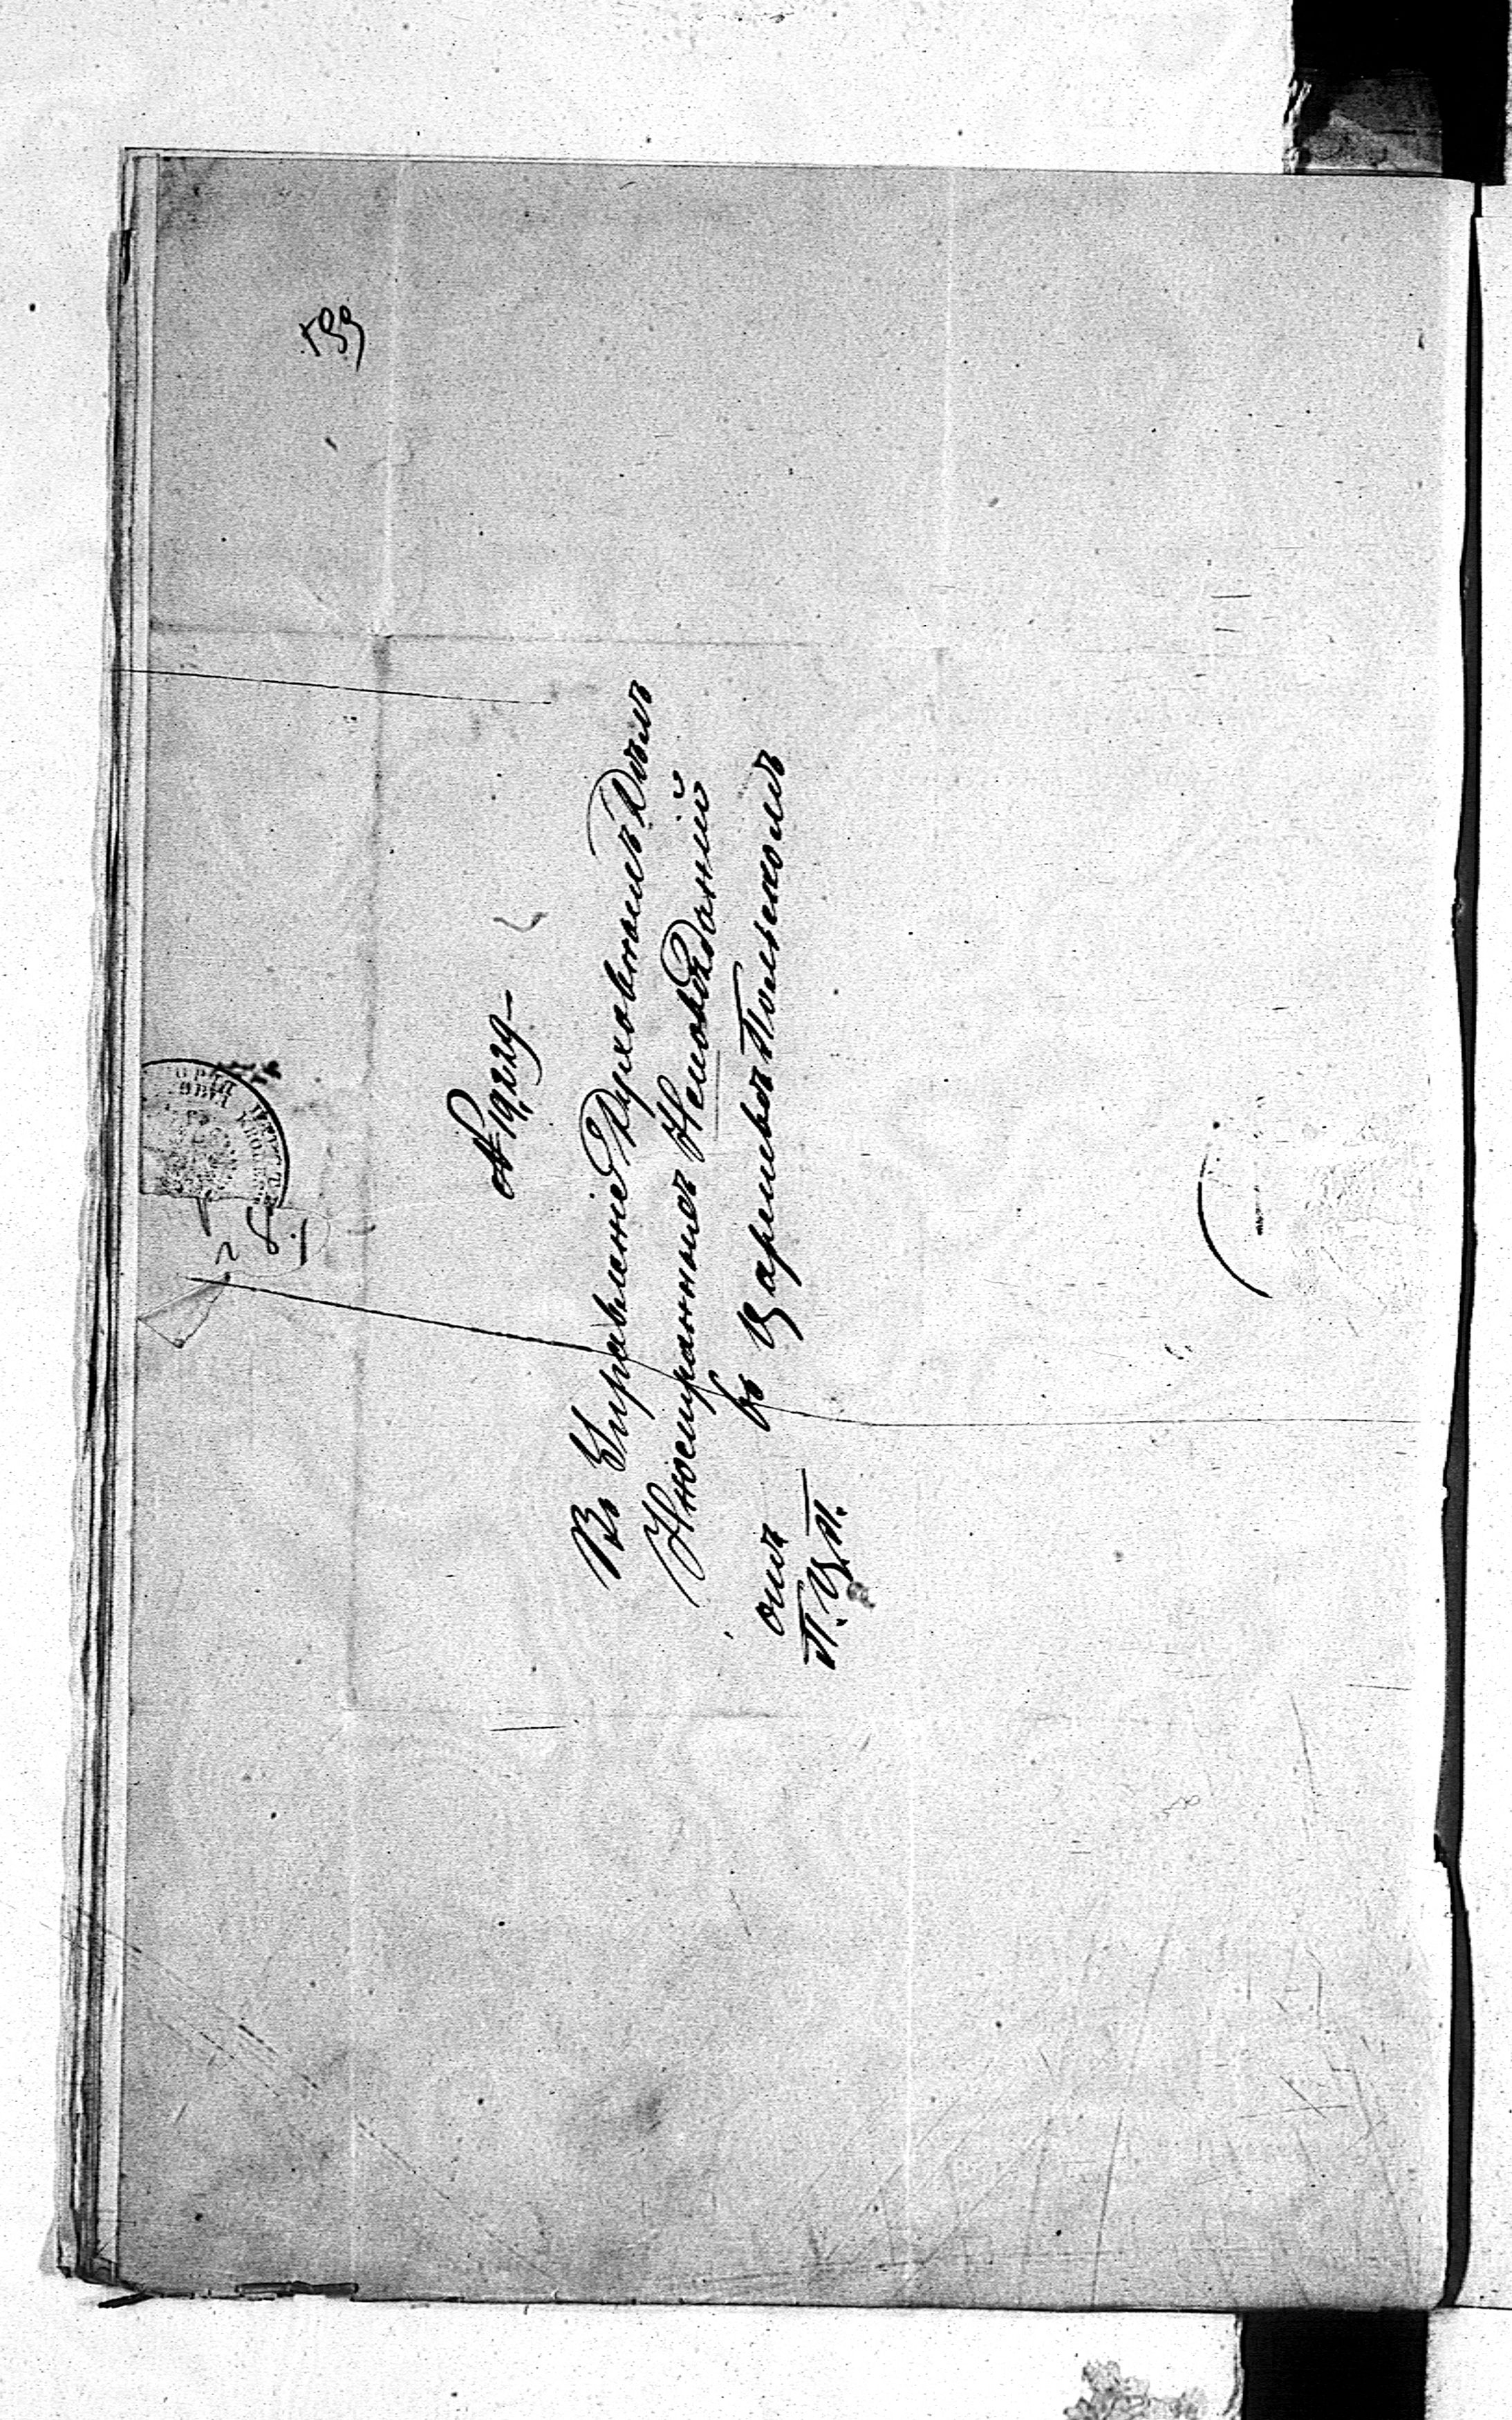 199
№ 19,229
Въ Управленіе Духовныхъ Дѣлъ
Иностранныхъ Исповѣданій
въ Царствѣ Польскомъ
отъ
П. Ц. П.